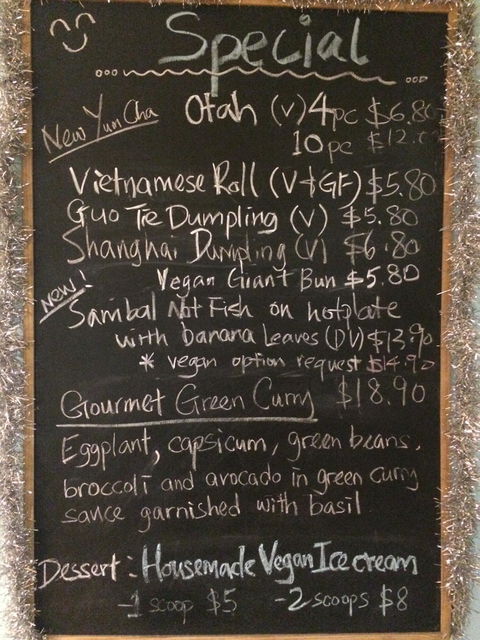 Special
New Yum Cha
Otah (V) 4pc $6.80
10pc $12.00
Vietnamese Roll (V+GF) $5.80
Guo Tie Dumpling (V) $5.80
Shanghai Dumpling (V) $6.80
Vegan Giant Bun $5.80
New!
Sambal Not Fish on hotplate
with banana Leaves (DV) $13.90
* vegan option request $14.90
Gourmet Green Curry $18.90
Eggplant, capsicum, green beans,
broccoli and avocado in green curry
sauce garnished with basil
Dessert: Housemade Vegan Ice cream
-1 scoop $5 -2 scoops $8